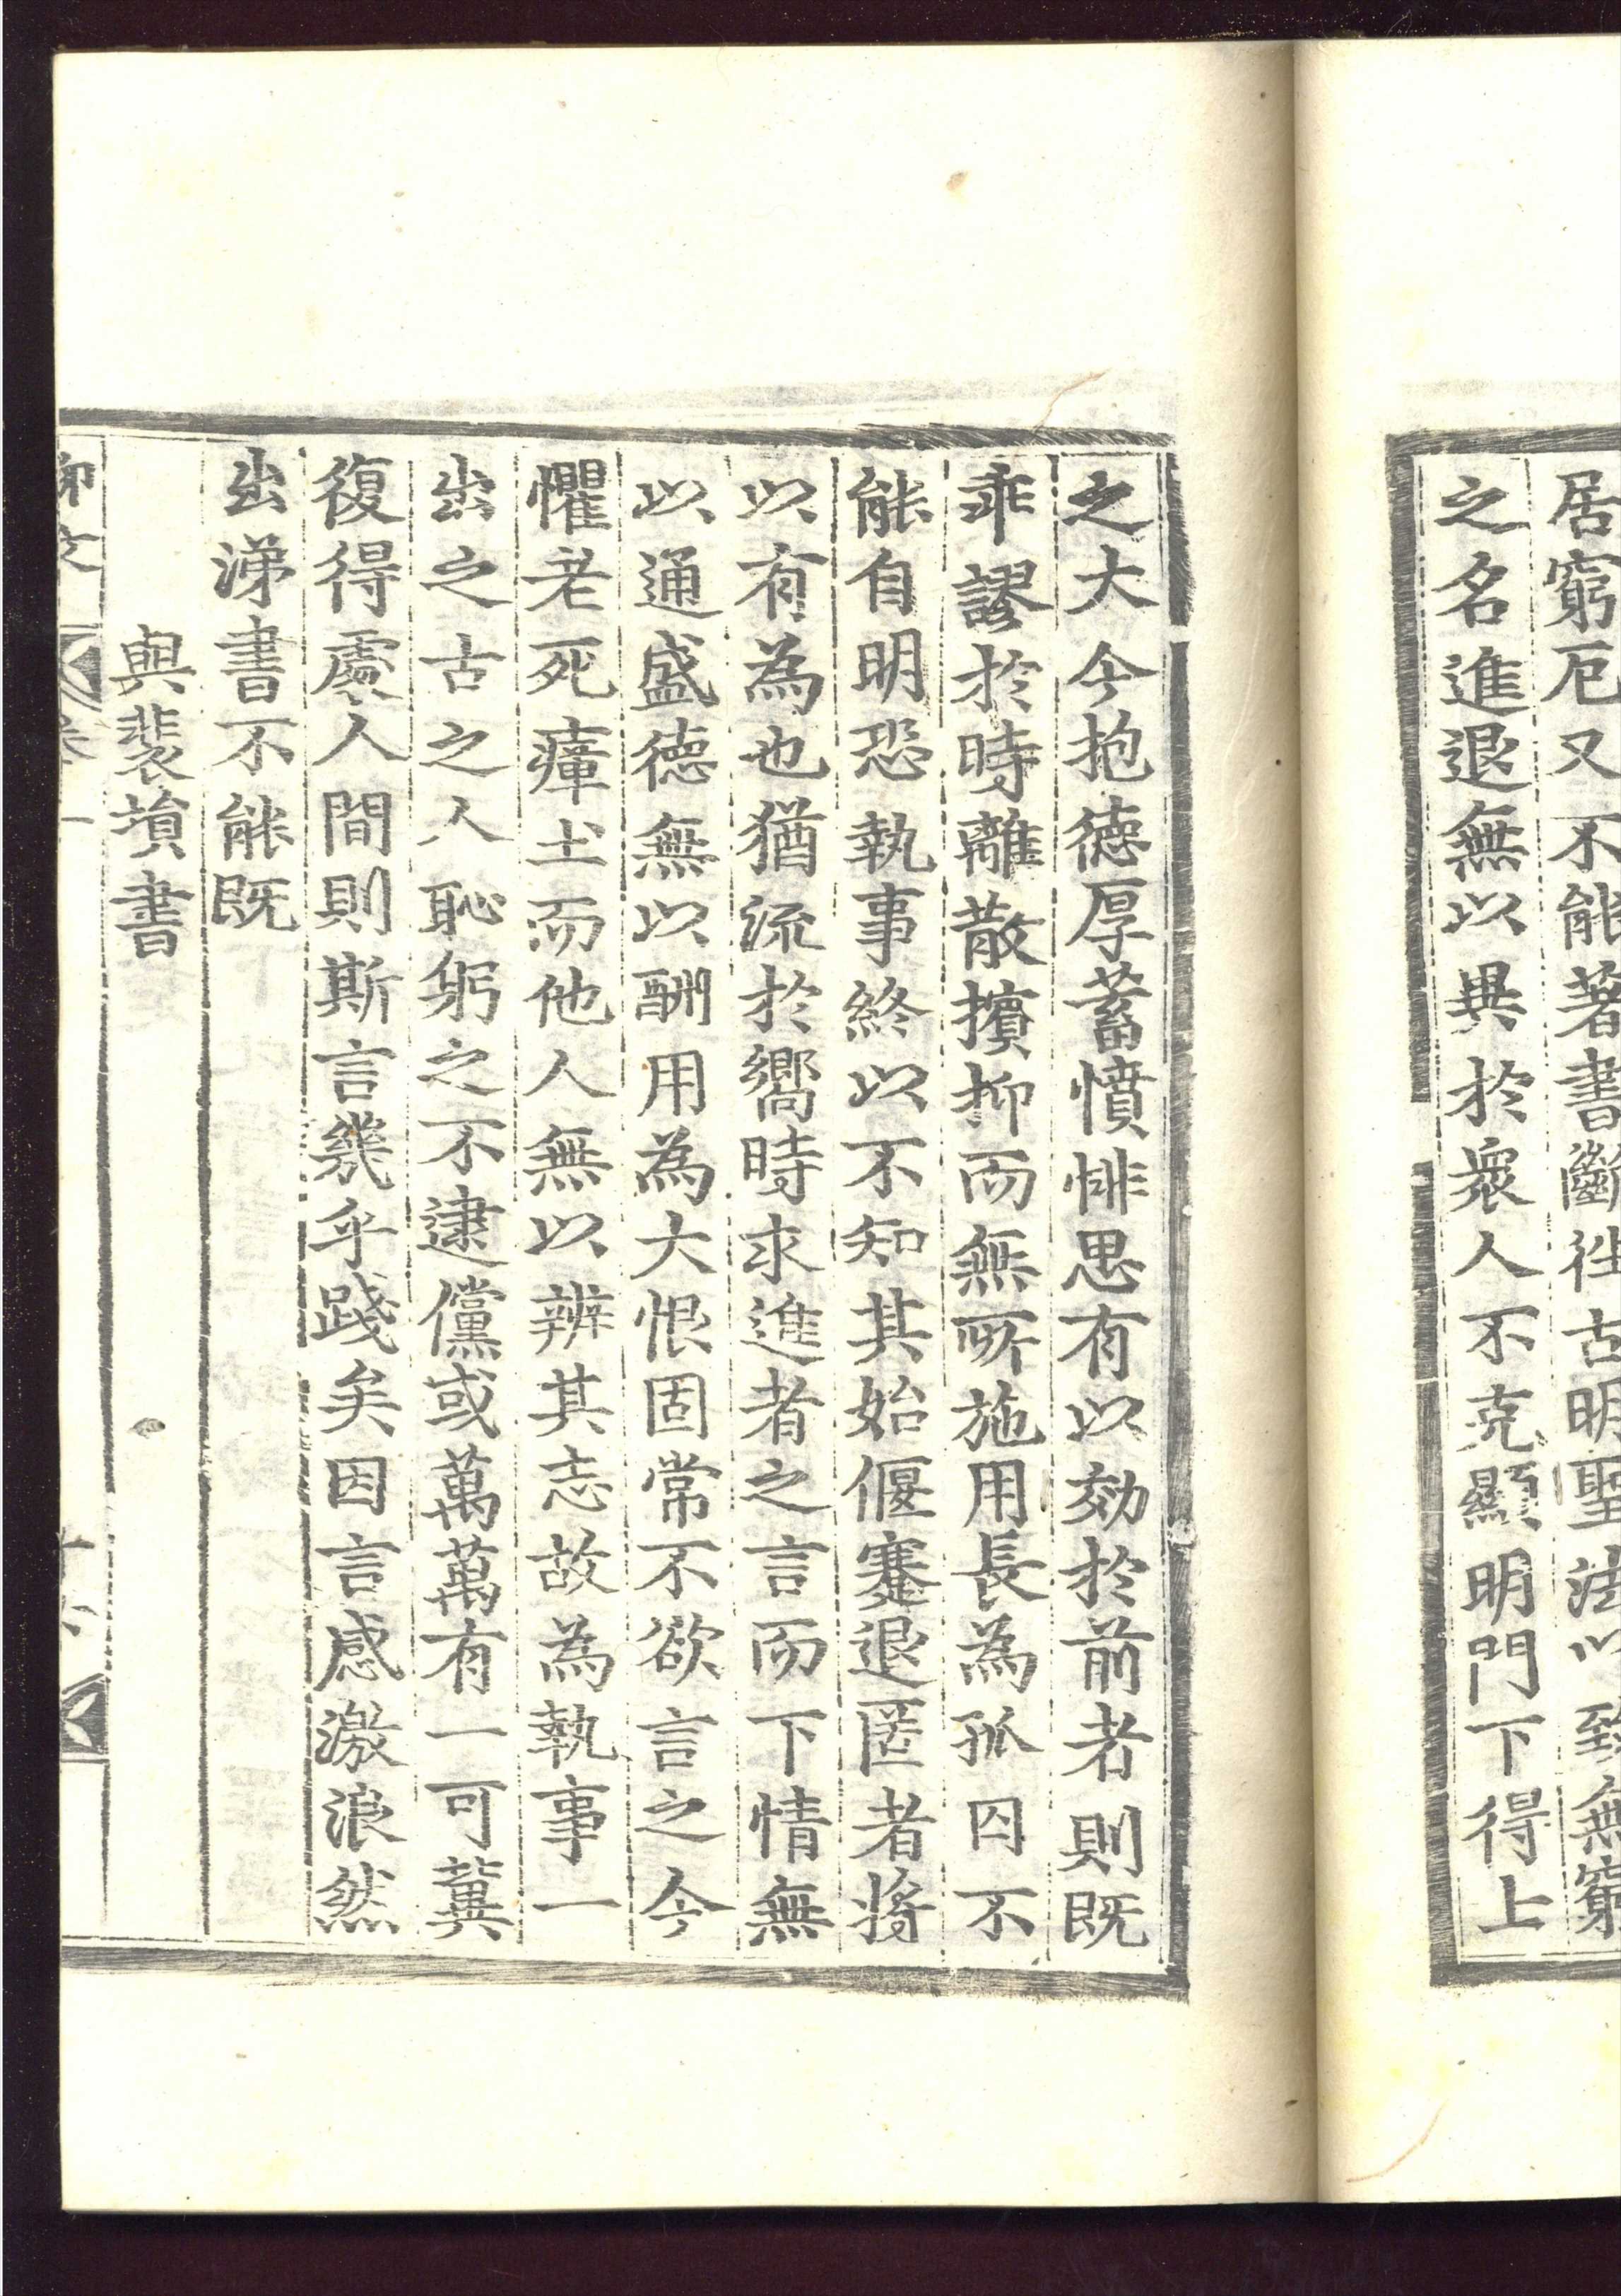 居窮厄又不能著書斷徃古明聖法以致無窮
之名進退無以異於衆人不克顯明門下得上
之大今抱德厚蓄憤悱思有以効於前者則既
乖謬於時離散擯抑而無所施用長為孤囚不
能自明恐執事終以不知其始偃蹇退匿者將
以有為也猶流於嚮時求進者之言而下情無
以通盛德無以酬用為大恨固常不欲言之今
懼老死瘴土而他人無以辨其志故為執事一
出之古之人恥躬之不逮儻或萬萬有一可冀
復得處人間則斯言幾乎踐矣因言感激浪然
出涕書不能既
與裴塤書